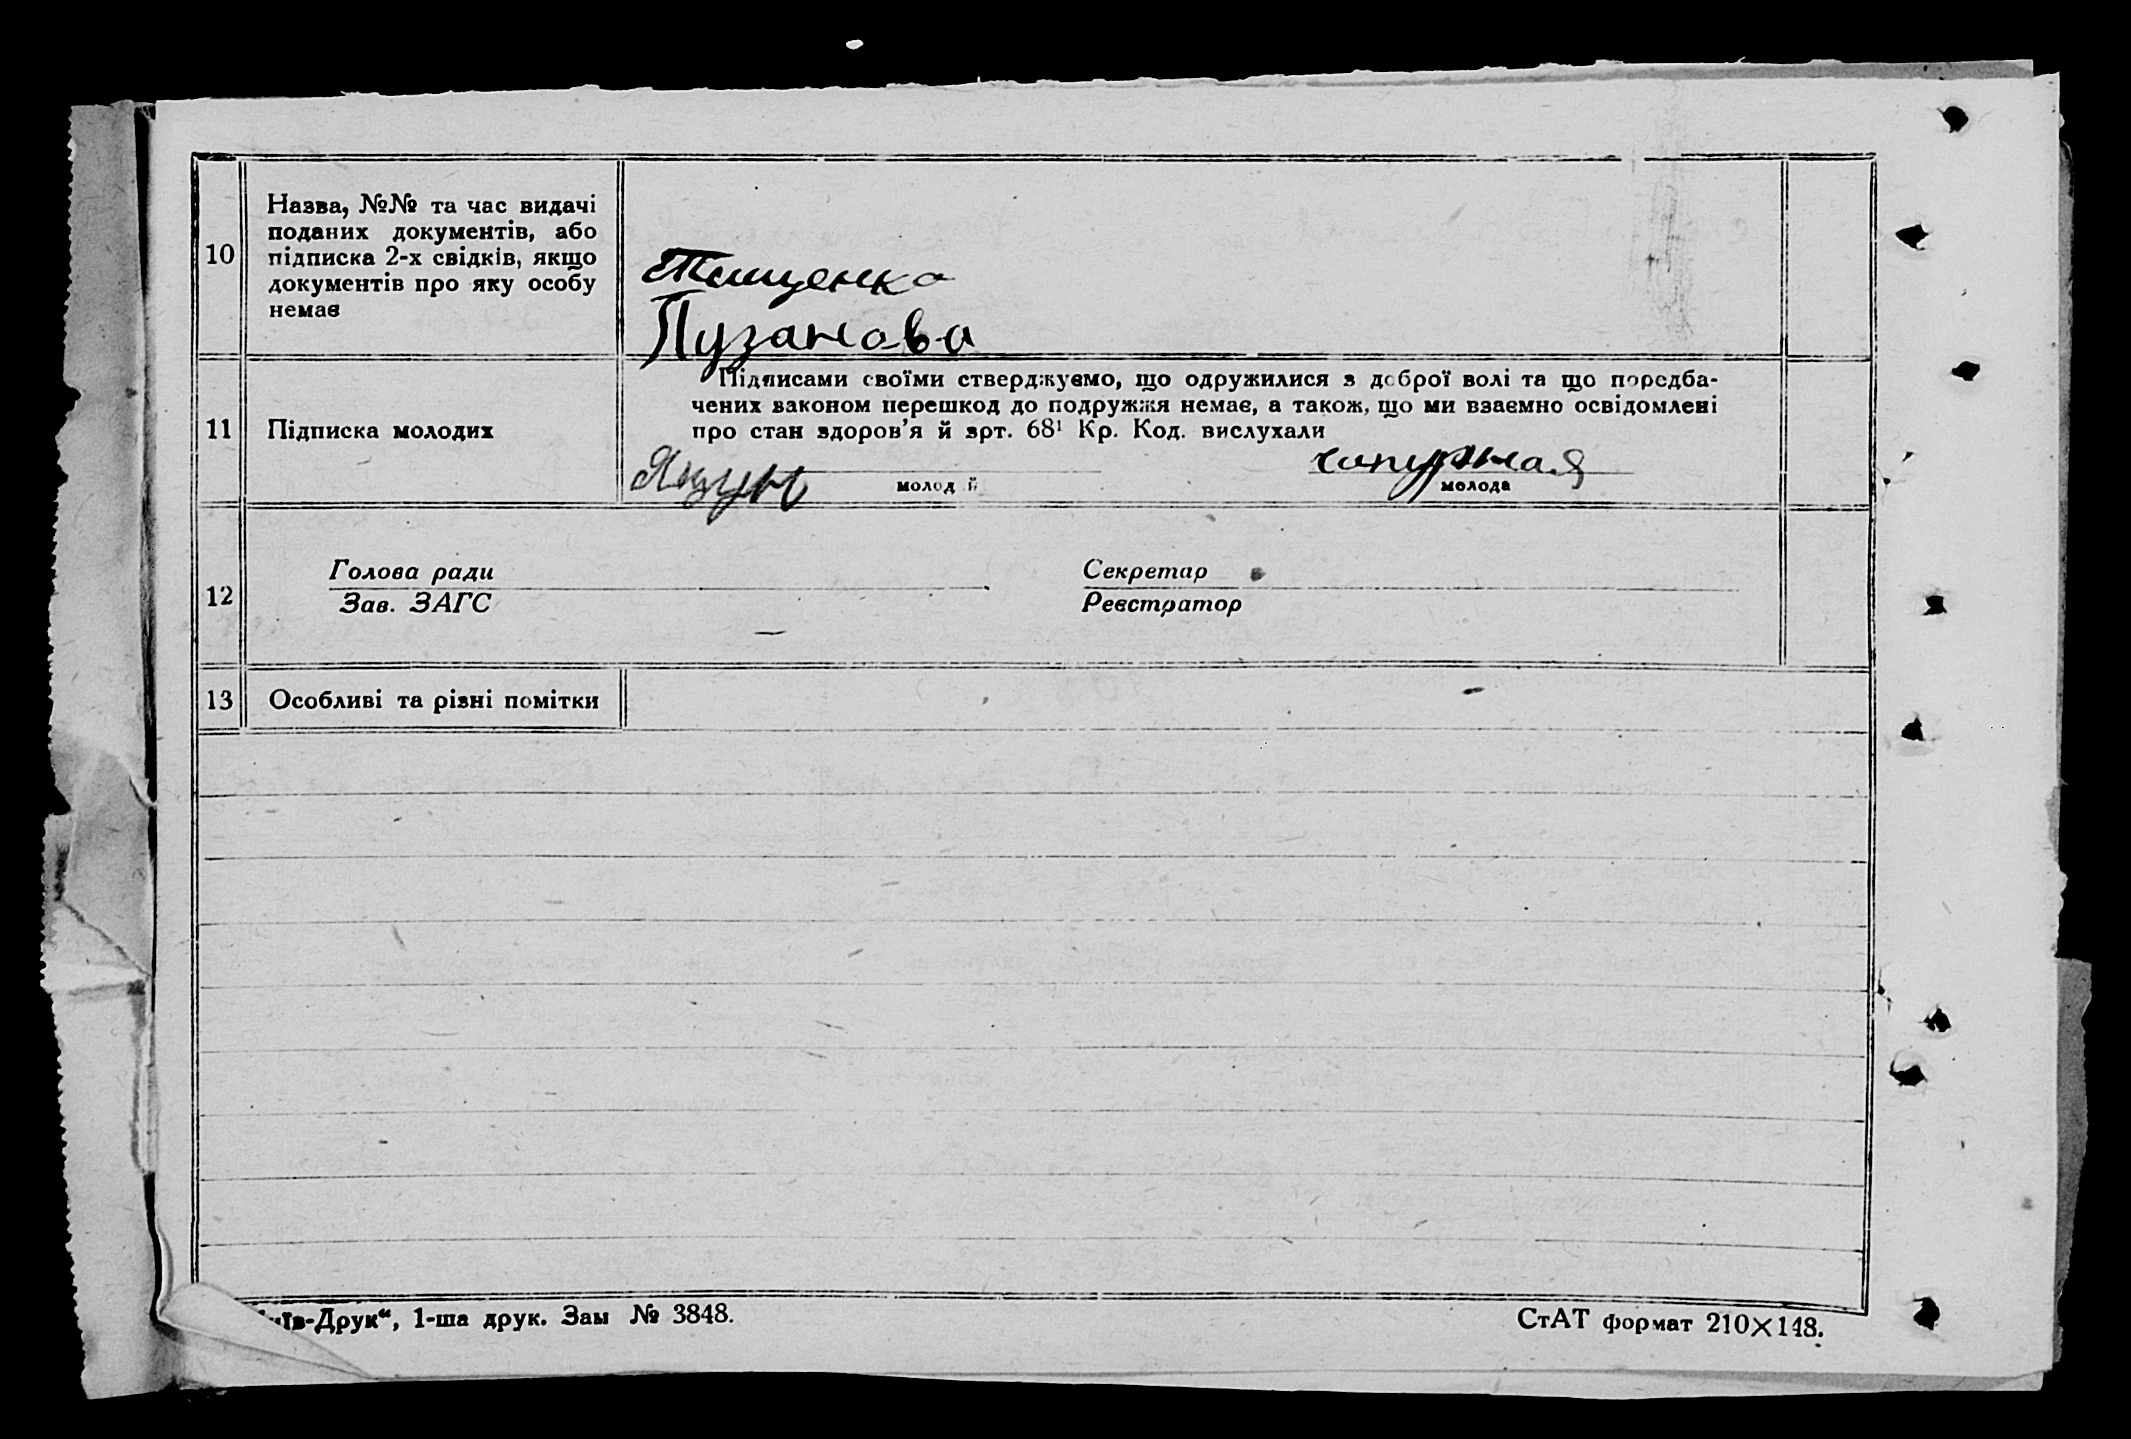 10
Назва, №№ та час видачі
поданих документів, або
підписка 2-х свідків, якщо
документів про яку особу
немає
Тищенко
Пузанова
11
Підписка молодих
Підписами своїми стверджуємо, що одружилися з доброї волі та що передба-
чених законом перешкод до подружжя немає, а також, що ми взаємно освідомлені
про стан здоров’я й арт. 68¹ Кр. Код. вислухали
Яцун
чапурная
молодий
молода
12
Голова ради
Зав. ЗАГС
Секретар
Реєстратор
13
Особливі та різні помітки
їв-Друк“, 1-ша друк. Зам № 3848.
СтАТ формат 210×148.